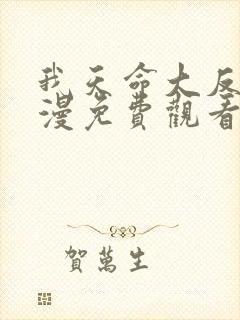 我天命大反
漫免費觀看
賀萬生